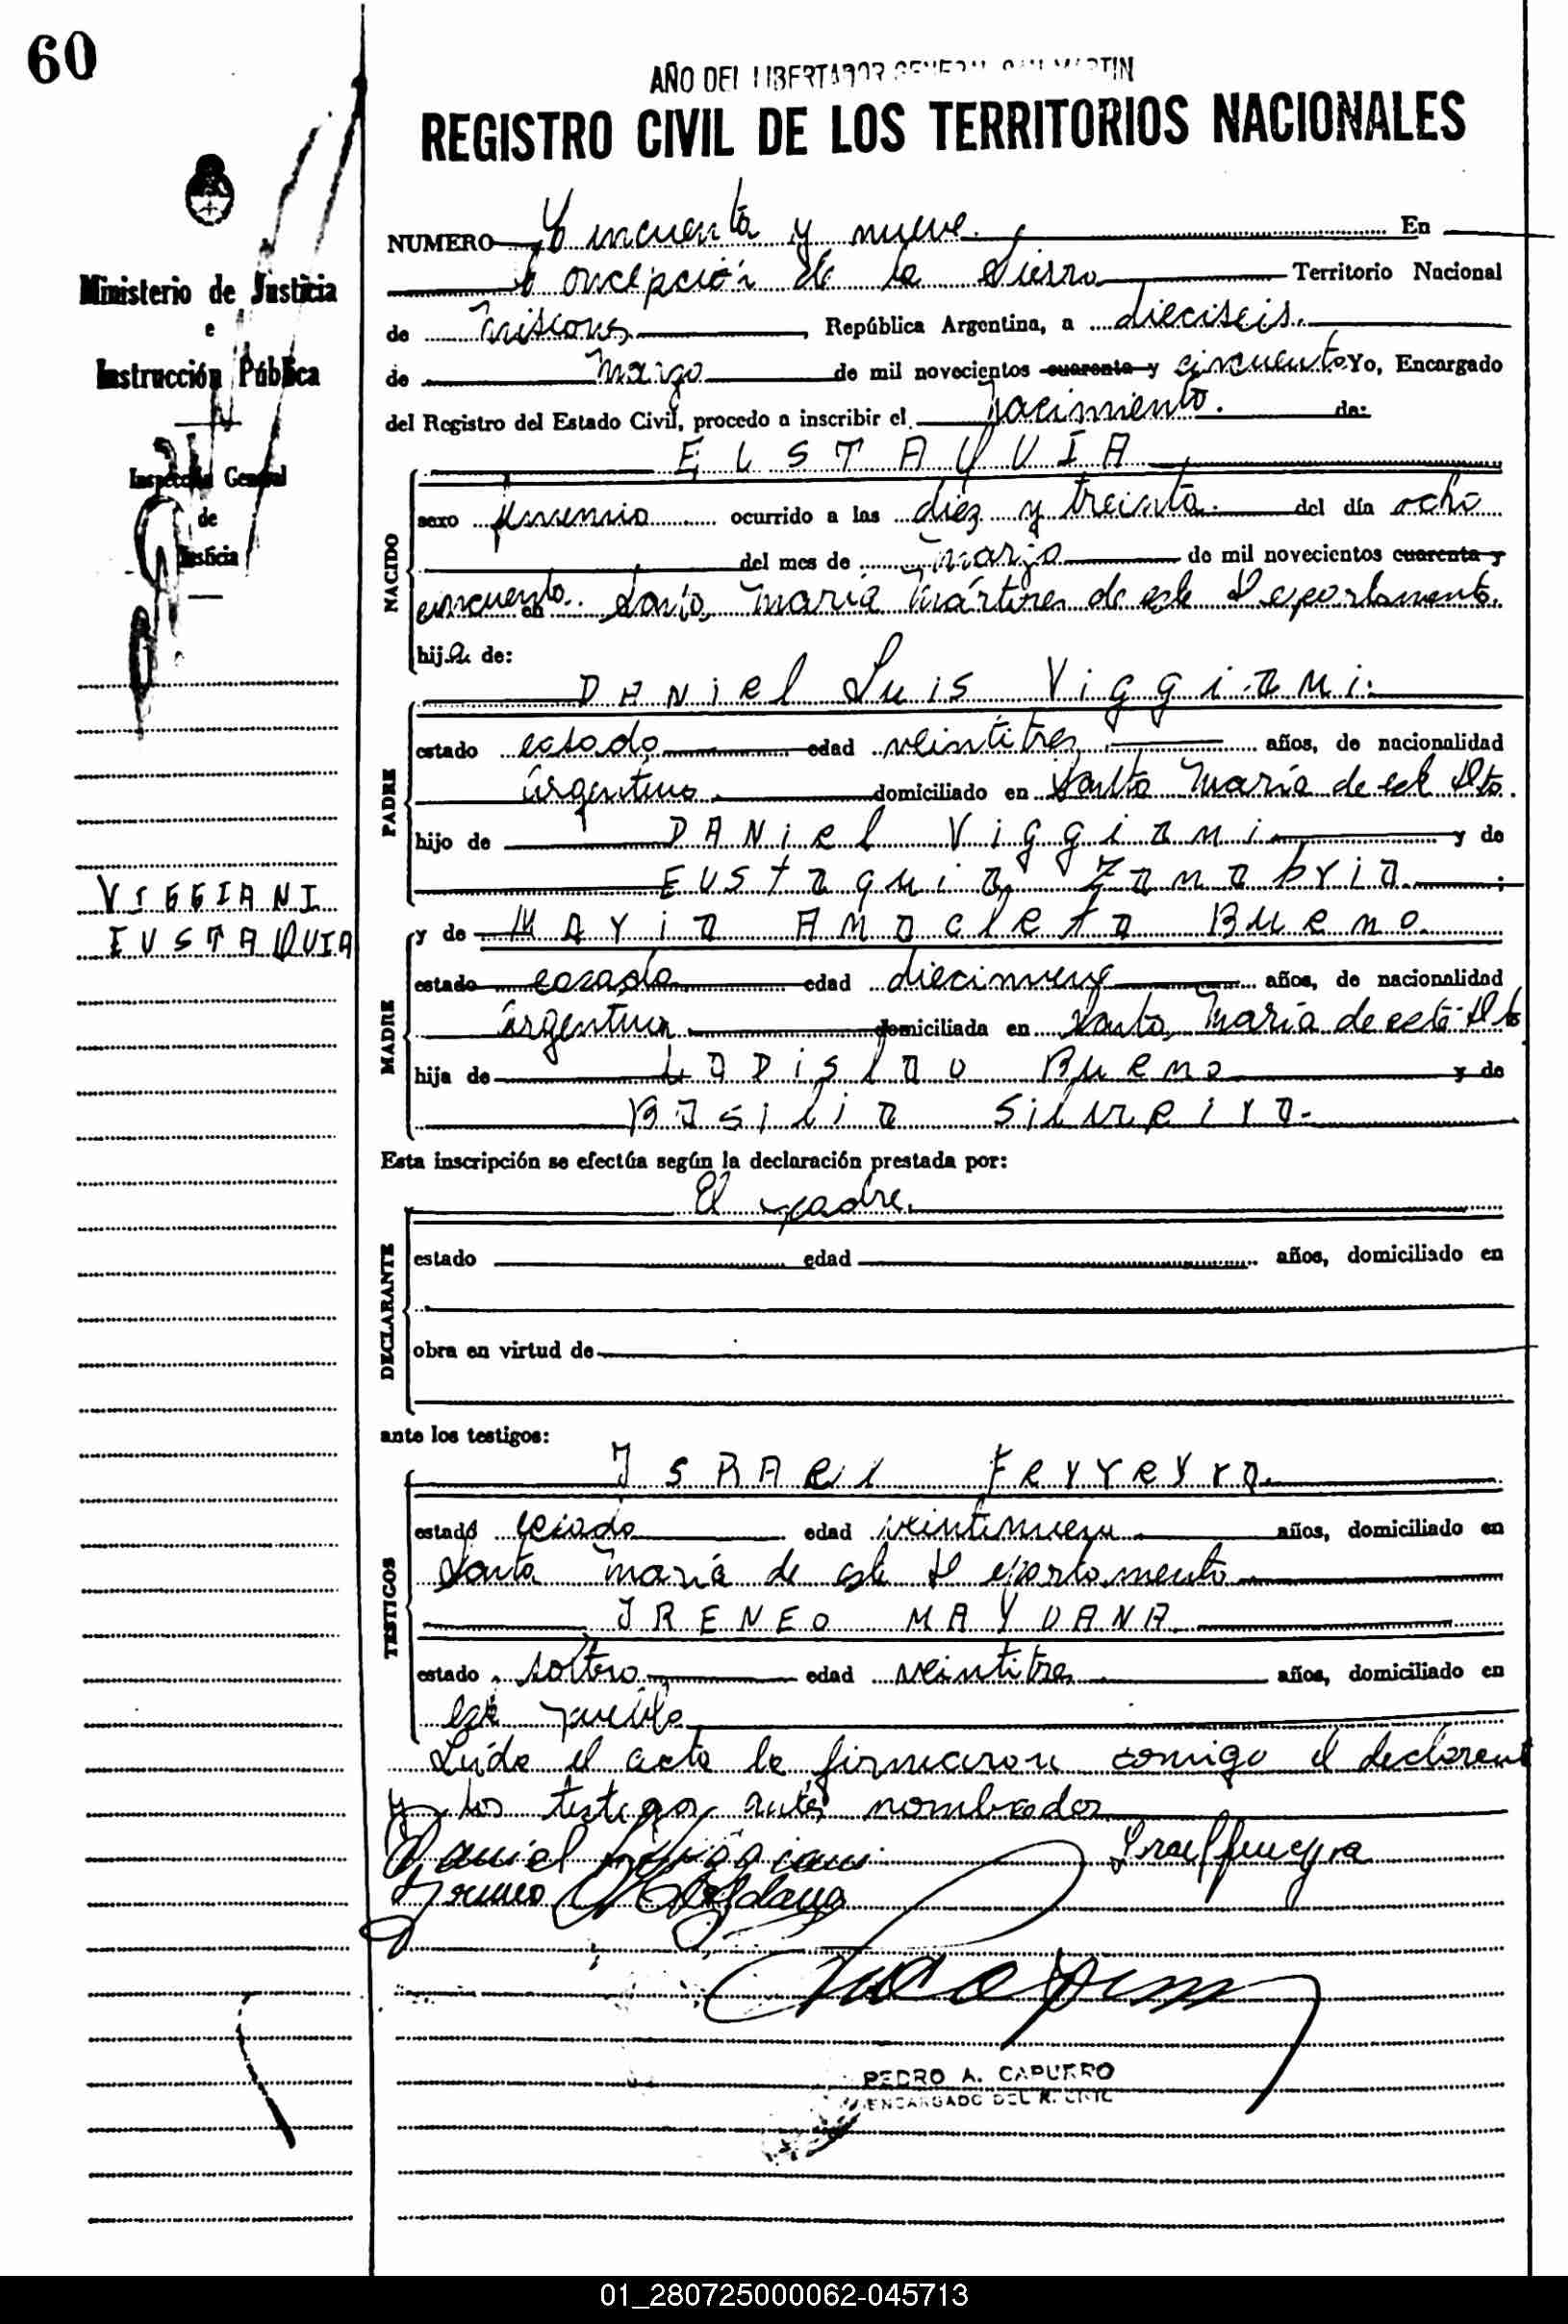 60
AÑO DEL LIBERTADOR GENERAL SAN MARTIN
REGISTRO CIVIL DE LOS TERRITORIOS NACIONALES
Ministerio de Justicia
e
Instrucción Pública
Inspección General
de
Justicia
VIGGIANI
EUSTAQUIA
NUMERO Cincuenta y nueve. En
Concepción de la Sierra Territorio Nacional
de Misiones, República Argentina, a dieciseis.
de Marzo de mil novecientos cuarenta y cincuenta Yo, Encargado
del Registro del Estado Civil, procedo a inscribir el nacimiento. de:
NACIDO
EUSTAQUIA
sexo femenino ocurrido a las diez y treinta. del día ocho
del mes de marzo de mil novecientos cuarenta y
cincuenta en Santa María Mártires de este Departamento.
hija de:
PADRE
Daniel Luis Viggiani.
estado casado edad veintitres años, de nacionalidad
argentina domiciliado en Santa María de este Dto.
hijo de Daniel Viggiani y de
Eustaquia Zanabria ;
MADRE
y de María Anacleta Bueno.
estado casada edad diecinueve años, de nacionalidad
argentina domiciliada en Santa María de este Dto
hija de Ladislao Bueno y de
Basilia Silveira.
Esta inscripción se efectúa según la declaración prestada por:
DECLARANTE
El padre.
estado edad años, domiciliado en
obra en virtud de
ante los testigos:
TESTIGOS
ISRAEL Ferreyra.
estado casado edad veintinueve años, domiciliado en
Santa María de este Departamento
IRENEO MAYDANA
estado soltero edad veintitres años, domiciliado en
este pueblo
Leída el acta la firmaron conmigo el declarante
y los testigos antes nombrados
Daniel Viggiani
Israel Ferreyra
Ireneo Maydana
PEDRO A. CAPURRO
ENCARGADO DEL R. CIVIL
01_280725000062-045713